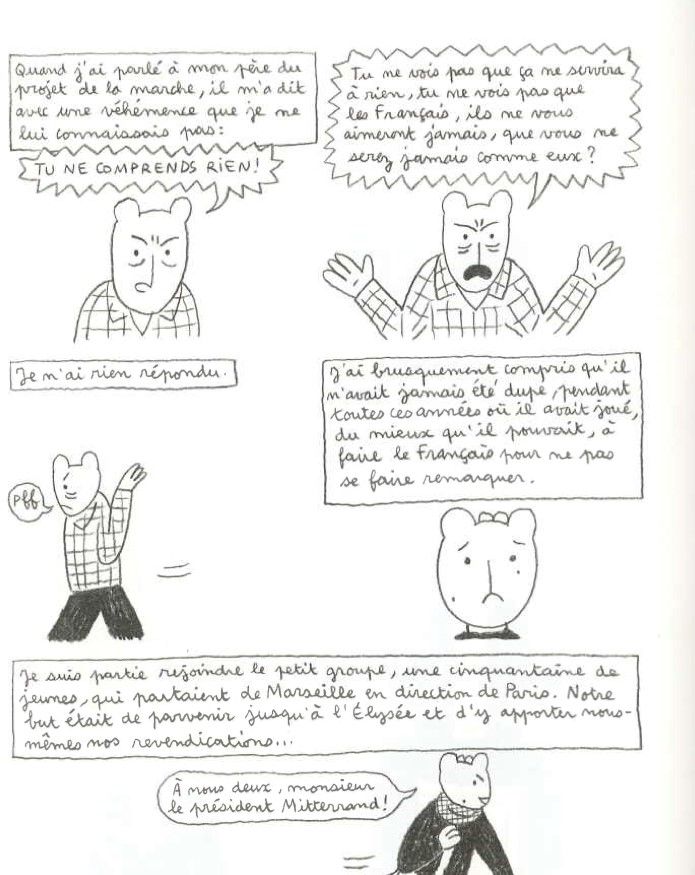 Quand j'ai parlé à mon père du
projet de la marche, il m'a dit
avec une véhémence que je ne
lui connaissais pas:
TU NE COMPRENDS RIEN!
Tu ne vois pas que ça ne servira
à rien, tu ne vois pas que
les Français, ils ne vous
aimeront jamais, que vous ne
serez jamais comme eux?
Je n'ai rien répondu.
J'ai brusquement compris qu'il
n'avait jamais été dupe, pendant
toutes ces années où il avait joué,
du mieux qu'il pouvait, à
faire le Français pour ne pas
se faire remarquer.
Pff
Je suis partie rejoindre le petit groupe, une cinquantaine de
jeunes, qui partaient de Marseille en direction de Paris. Notre
but était de parvenir jusqu'à l'Élysée et d'y apporter nous-
mêmes nos revendications...
À nous deux, monsieur
le président Mitterrand!